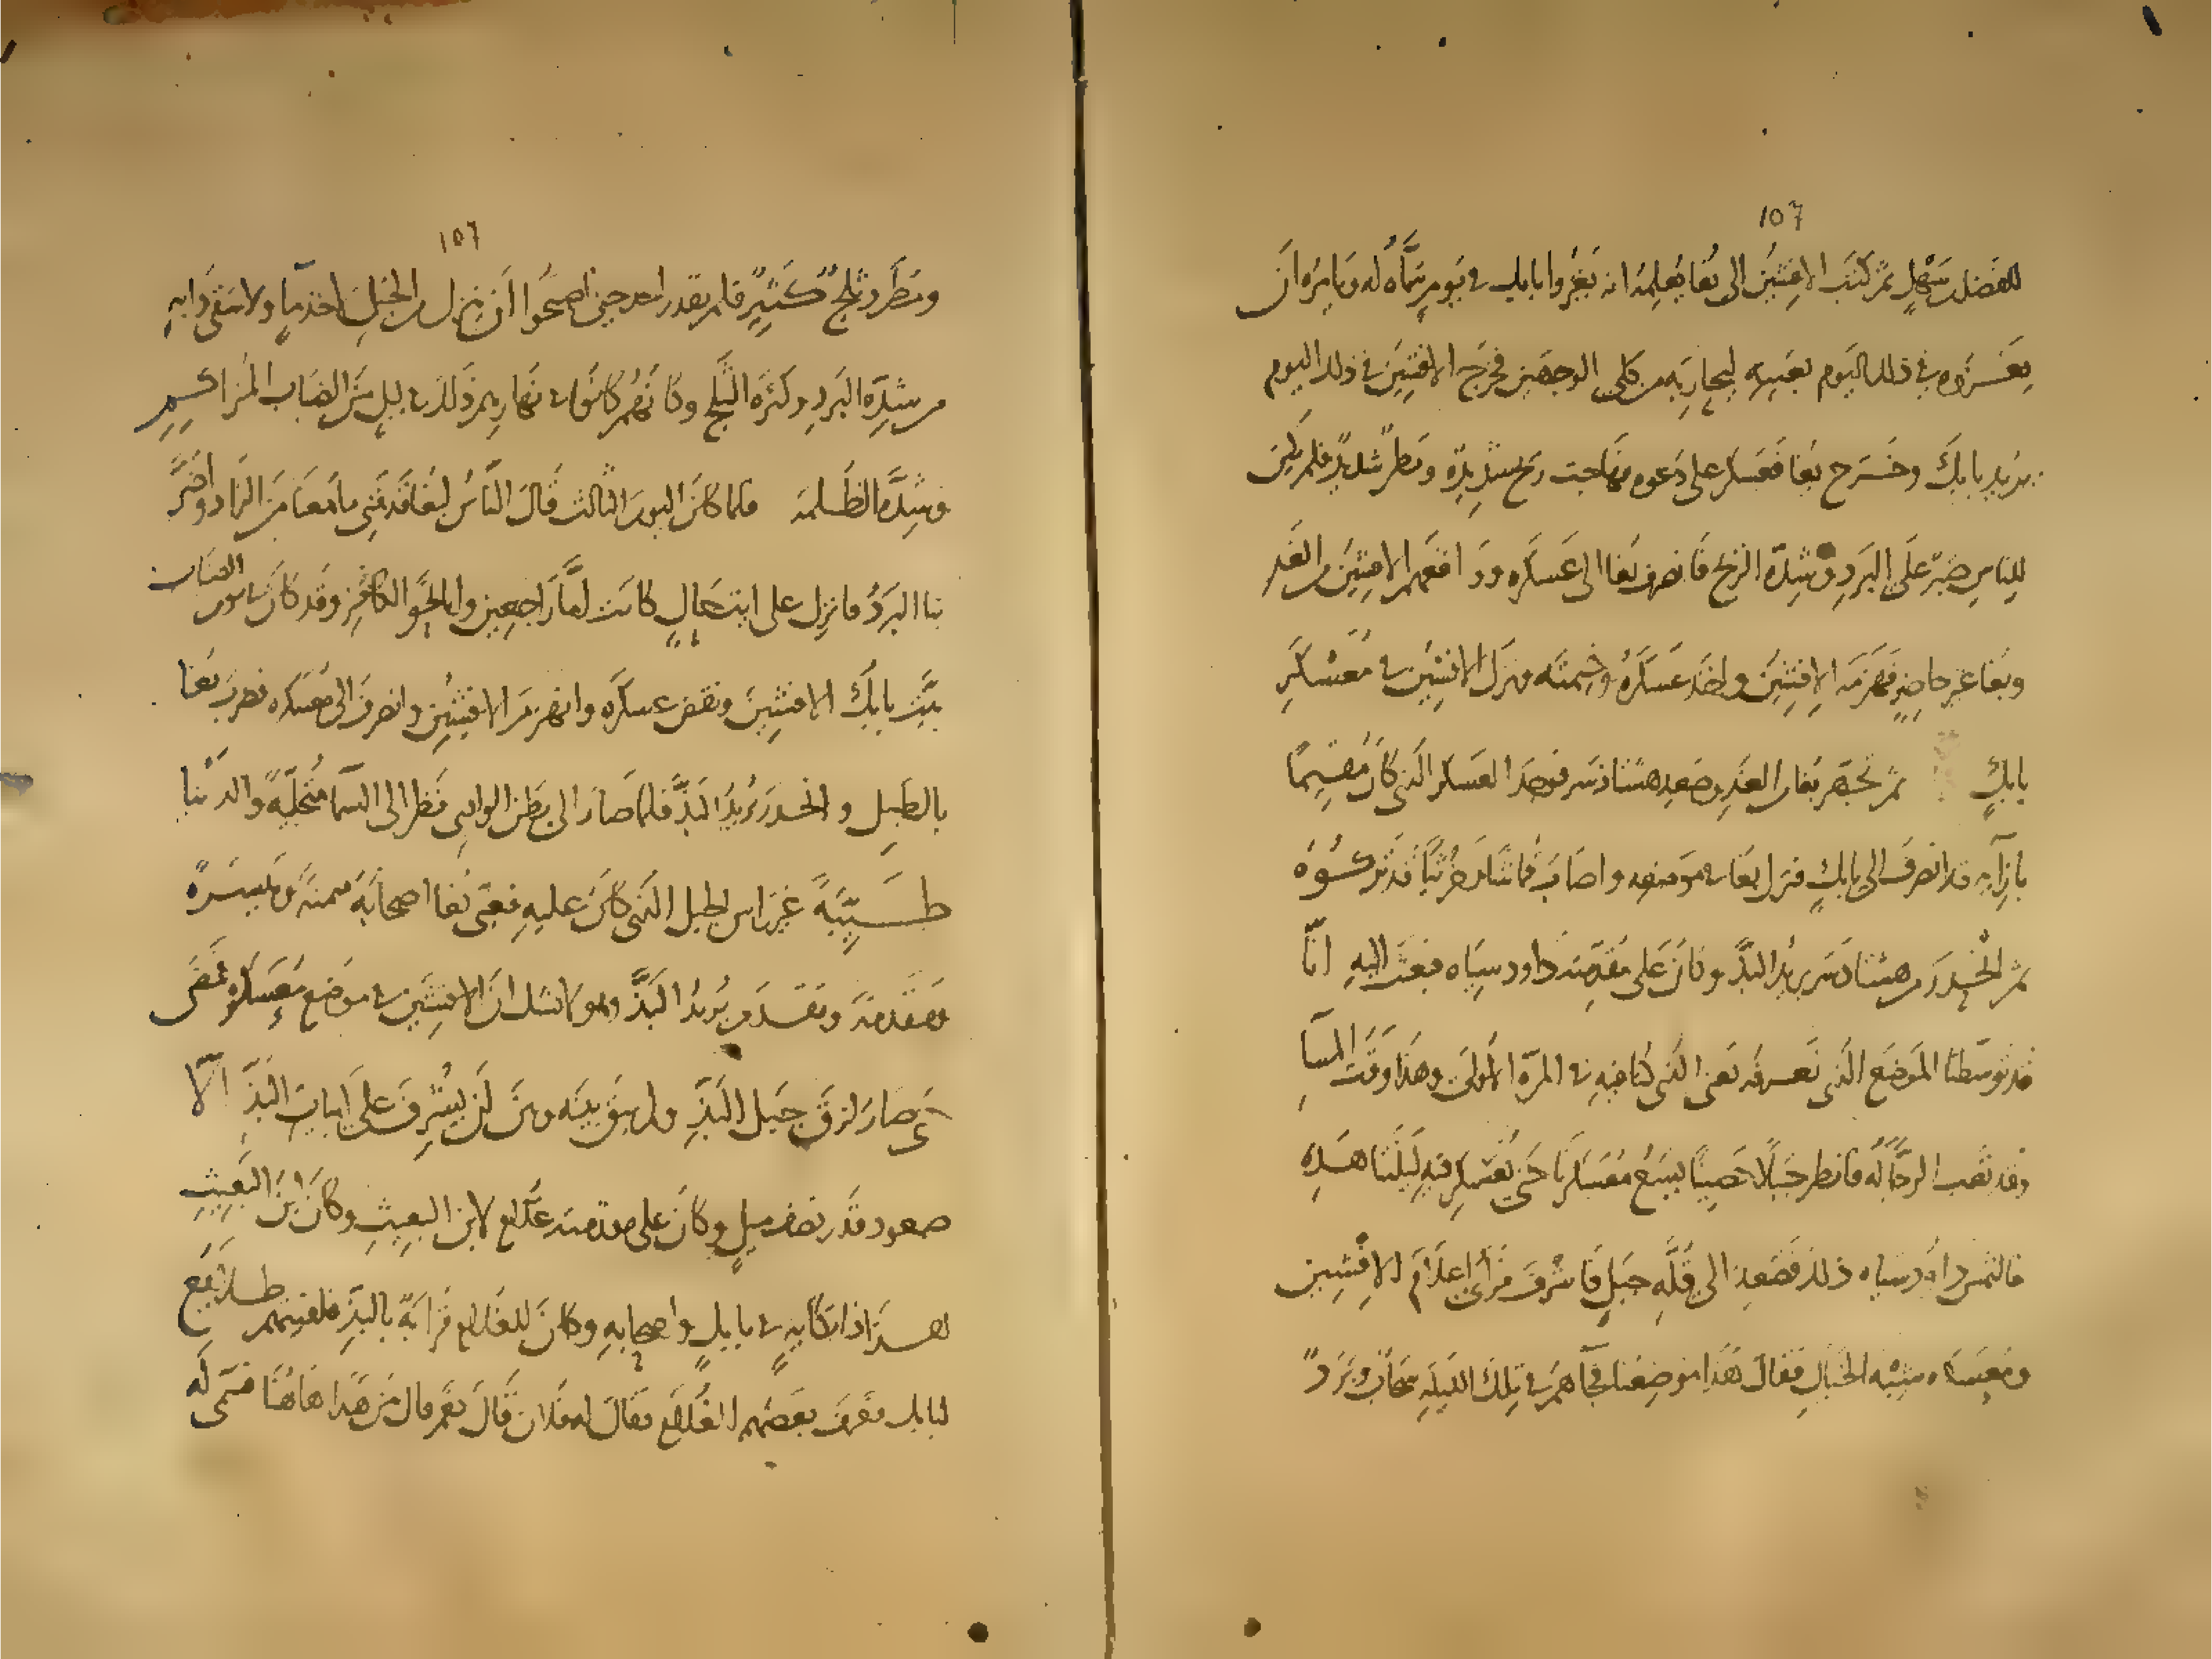 ١٥٦
للفضل بن سهل ثم كتب الافشين الى بغا يعلمه انه يغزوا بابك في يوم سماه له ويامره ان
يغزوه في ذلك اليوم بعينه ليحاربه من كلى الوجهين فخرج الافشين في ذلك اليوم
يريد بابك وخرج بغا فعسكر على دعوه فهاجت ريح شديدة ومطر شديد فلم يكن
للناس صبر على البرد وشدة الريح فانصرف بغا الى عسكره وواقعهم الافشين من الغد
وبغا غير حاضر فهزمه الافشين واخذ عسكره وخيمته ونزل الافشين في معسكر
بابك ثم تجهز بغا من الغد وصعد هشتادسر فوجد العسكر الذي كان مقيما
بازائه قد انصرف الى بابك فنزل بغا في موضعه واصاب قماشا وخرثيا قد تركوه
ثم انحدر من هشتادسر يريد البذ وكان على مقدمته داود سياه فبعث اليه انا
قد توسطنا الموضع الذي نعرفه يعني الذي كنا فيه في المرة الاولى وهذا وقت المساء
وقد تعب الرجالة فانظر جبلا حصينا يسع معسكرنا حتى نعسكر فيه ليلتنا هذه
فالتمس داود سياه ذلك فصعد الى قلة جبل فاشرف فراى اعلام الافشين
ومعسكره شبه الخيال فقال هذا موضعنا فجاءهم في تلك الليلة سحاب وبرد
١٥٦
ومطر وثلج كثير فلم يقدر احد حين اصبحوا ان ينزل من الجبل ياخذ ماء ولا يسقي دابته
من شدة البرد وكثرة الثلج وكانهم كانوا في نهارهم ذلك في ليل من الضباب المتراكم
وشدة الظلمة فلما كان اليوم الثالث قال الناس لبغا قد فني ما معنا من الزاد واضر
بنا البرد فانزل على اية حال كانت اما راجعين واما نحو الكافر وقد كان في يوم الضباب
بيت بابك الافشين ونقض عسكره وانهزم الافشين وانصرف الى معسكره فضرب بغا
بالطبل وانحدر يريد البذ فلما صار الى بطن الوادي نظر الى السما منجلية والدنيا
طيبة غير راس الجبل الذي كان عليه فعبى بغا اصحابه ميمنة وميسرة
ومقدمة وتقدم يريد البذ وهو لا يشك ان الافشين في موضع معسكره فمضى
حتى صار لزق جبل البذ ولم يبق بينه وبين ان يشرف على ابيات البذ الا
صعود قدر نصف ميل وكان على مقدمته غلام لابن البعيث وكان ابن البعيث
هذا ذا نكاية في بابك واصحابه وكان للغلام قرابة بالبذ فلقيتهم طلايع
لبابك فعرف بعضهم الغلام فقال له فلان قال نعم قال من هذا هاهنا فسمى له